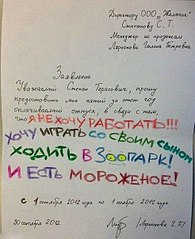 Директору ООО "Желание"
Степанову С. Т.
Менеджер по продажам
Ларионова Галина Петровна
Заявление
Уважаемый Степан Тарасович, прошу
предоставить мне отгул за этот год
оплачиваемый отпуск в связи с тем,
что Я НЕ ХОЧУ РАБОТАТЬ!!!
ХОЧУ ИГРАТЬ СО СВОИМ СЫНОМ
ХОДИТЬ В ЗООПАРК!
И ЕСТЬ МОРОЖЕНОЕ!
с 1 октября 2012 года по 1 ноября 2012 года.
30 октября 2012